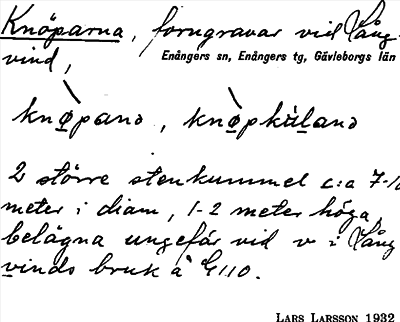 Knöparna, forngravar vid Lång-
vind,
Enångers sn, Enångers tg, Gävleborgs län
knø̀panə, knø̀pkàlanə
2 större stenkummel c:a 7-10
meter i diam, 1-2 meter höga,
belägna ungefär vid v i Lång
vinds bruk å G110.
LARS LARSSON 1932